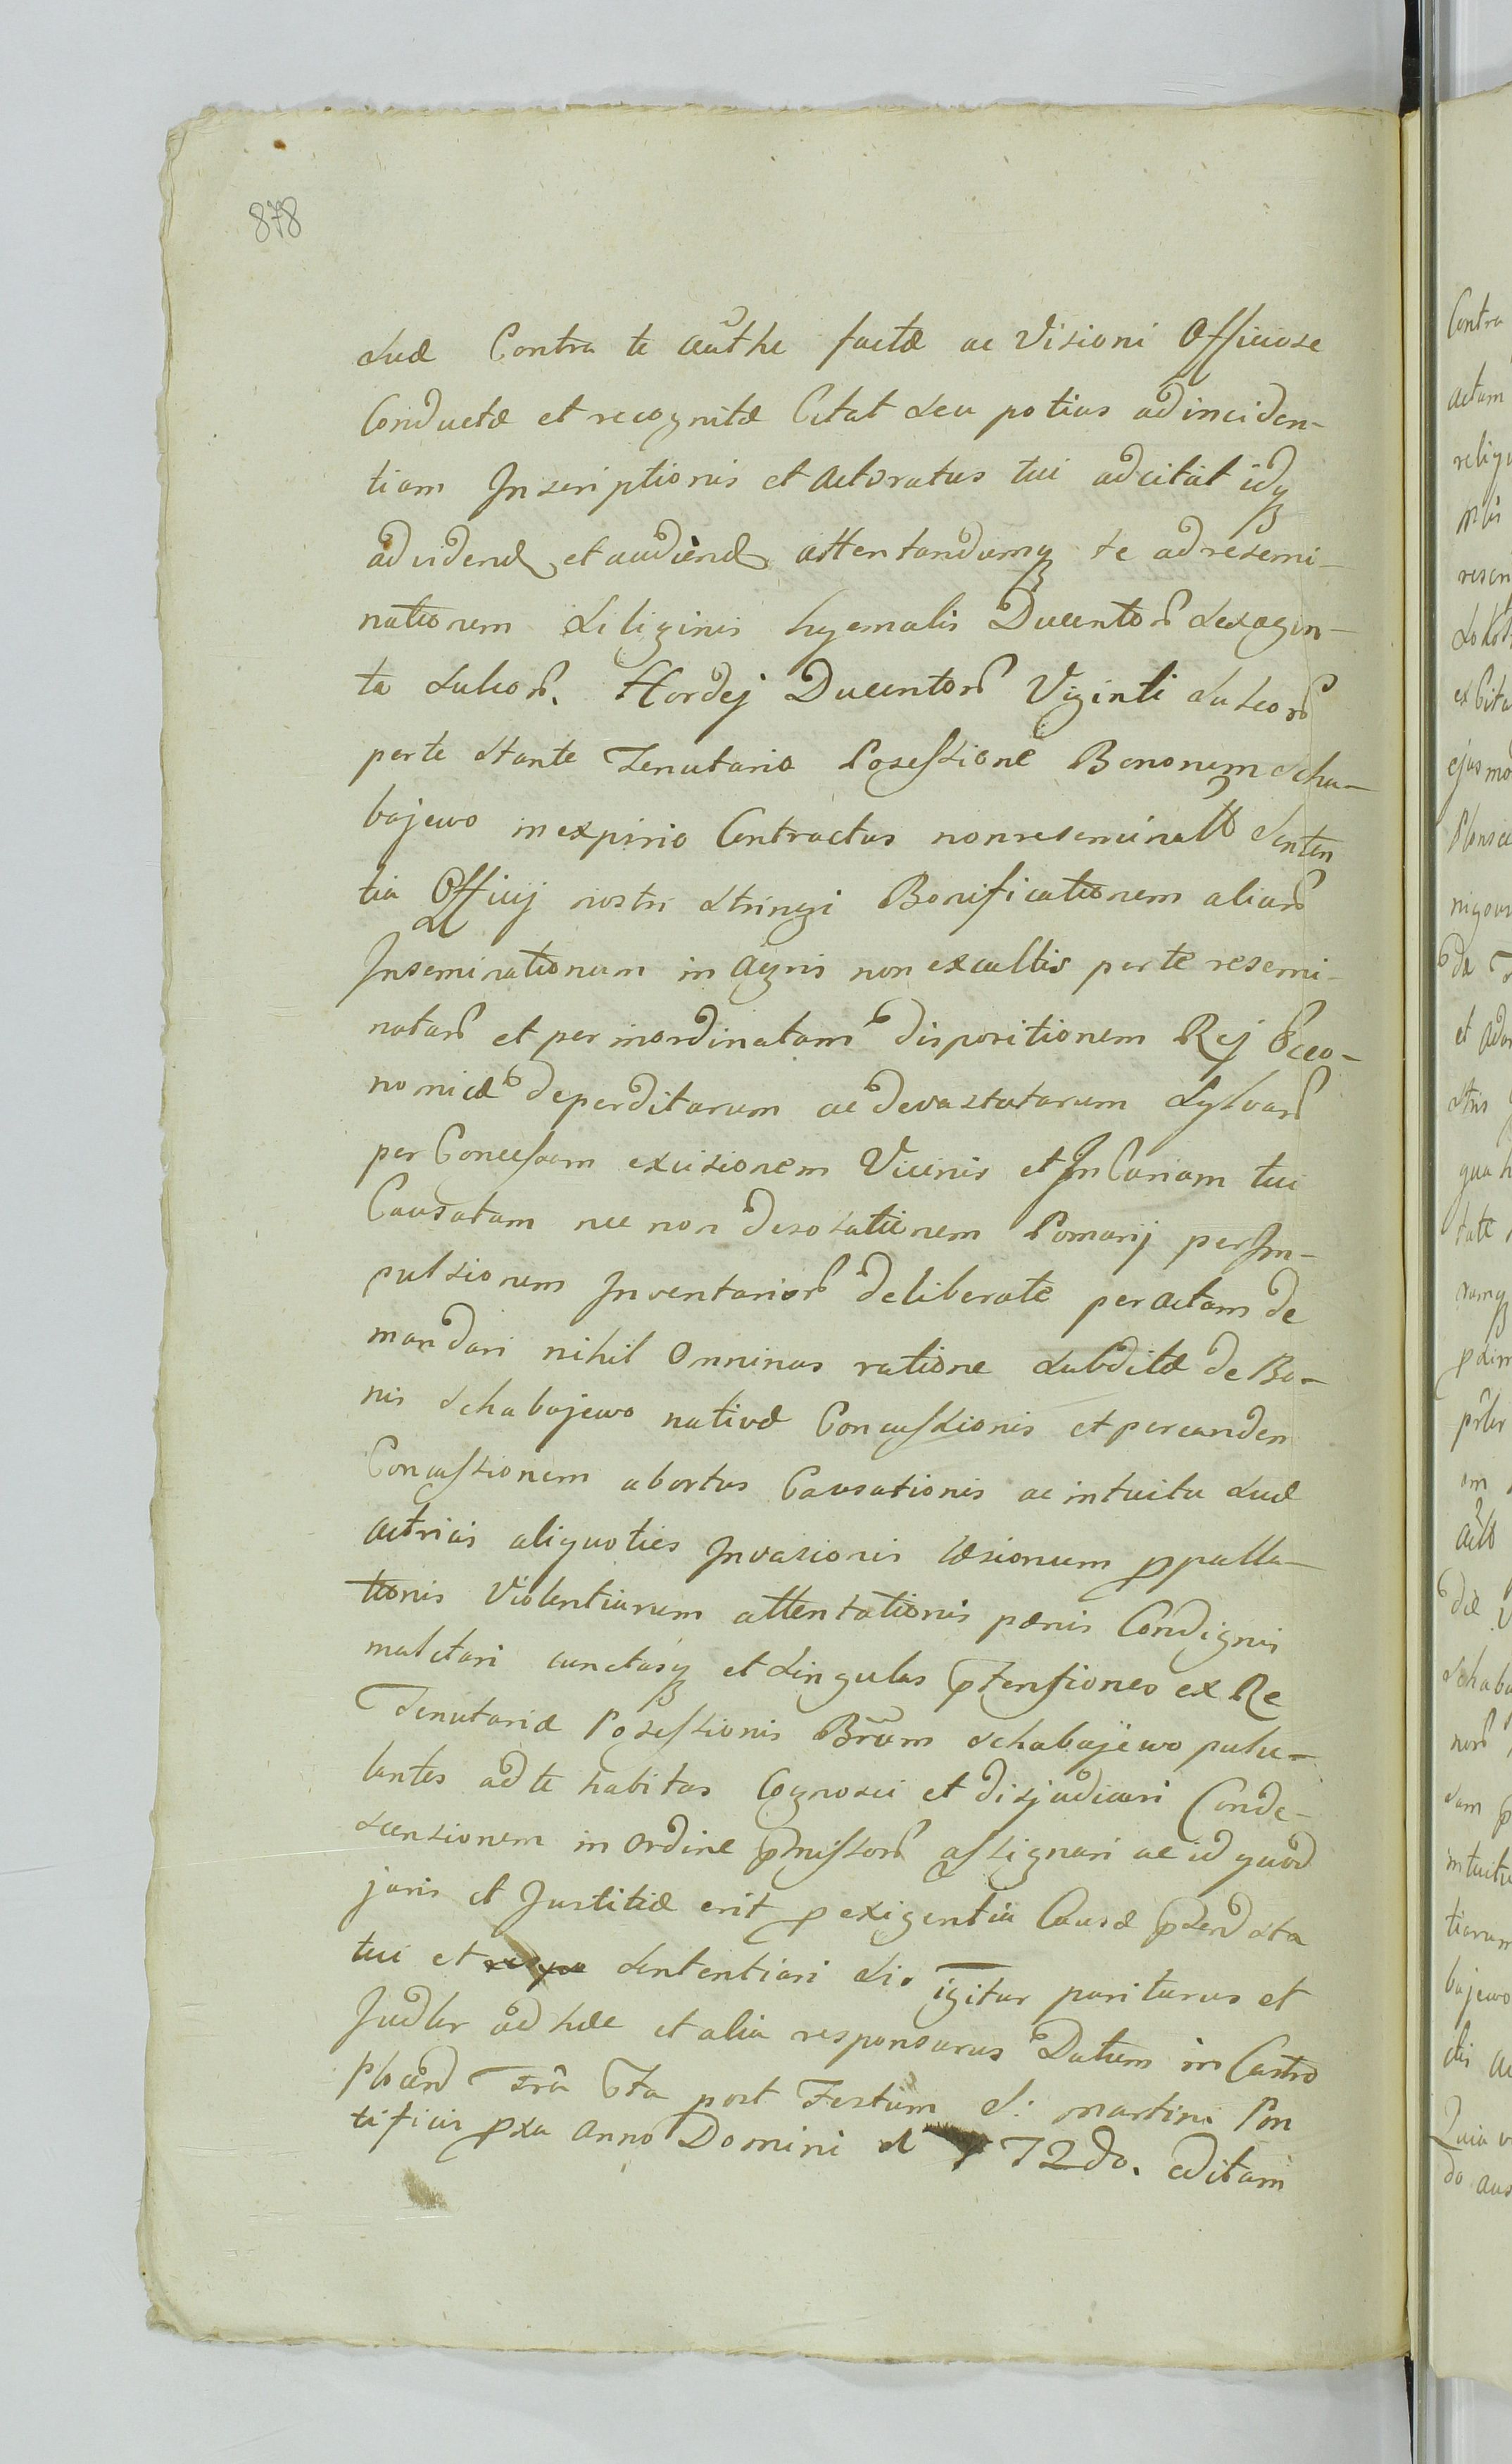 878
suæ Contra te authe factæ ac Visioni Officiose
Conductæ et recognitæ Citat seu potius ad inciden-
tiam Inscriptionis et Actoratus tui adcitat idq
ad videnđ et audienđ attentandumq te ad resemi-
nationem siliginis hyemalis Ducentor sexagin-
ta sulcor. Hordej Ducentor Viginti sulcor
per te stante Tenutaria Possessione Bonorum Scha-
bajewo in expirio Contractus non reseminatt Senten
tia Officij nostri stringi Bonificationem aliar
Inseminationum in Agris non excultis per te resemi-
natar et per inordinatam dispositionem Rej Oeco-
nomicæ deperditarum ac devastatarum Sylvar
per Concessam excisionem Vicinis et In Curiam tui
Causatam nec non desolationem Pomarij per Im-
pulsionem Inventarior deliberate peractam de
mandari nihil Ominus ratione subditæ de Bo-
nis Schabajewo nativæ Concussionis et per eandem
Concussionem abortus Causationis ac intuitu suæ
actricis aliquoties Invasionis læsionum ppalla-
tionis Violentiarum attentationis pænis Condignis
mulctari cunctasq et singulas ptensiones ex Re
Tenutariæ Possessionis Brum Schabajewo pulu-
lantes ad te habitas Cognosci et disjudicari Conde-
scensionem in ordine pmissor assignari ac id quod
juris et Justitiæ erit p exigentia Causæ pterđ sta
tui et sententiari Sis igitur pariturus et
Judlr ad hæc et alia responsurus Datum in Castro
Plocen Fria 6ta post Festum S: Martini Pon
tificis pxa Anno Domini 1772do. editam
Contra
actam
religi
resen
ex Cita
ejus mo
et
stris
qua h
tate
ramq
intuitu
tiarum
bajewo
Quia v
do aus